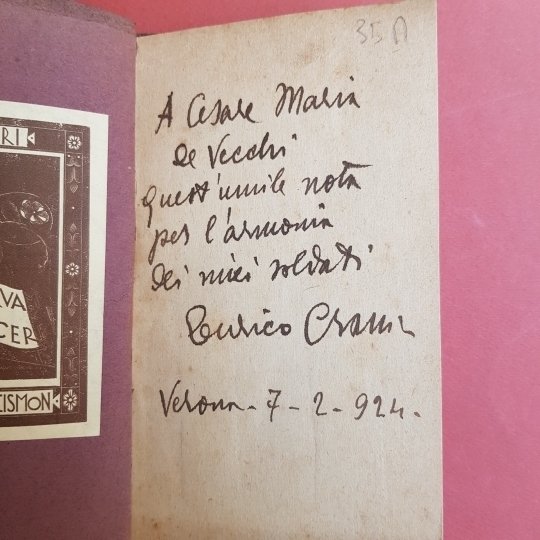 RI
VA
CER
CISMON
35
A Cesare Maria
de Vecchi
Quest'umile nota
per l'armonia
dei miei soldati
Enrico
Verona - 7 - 2 - 924.